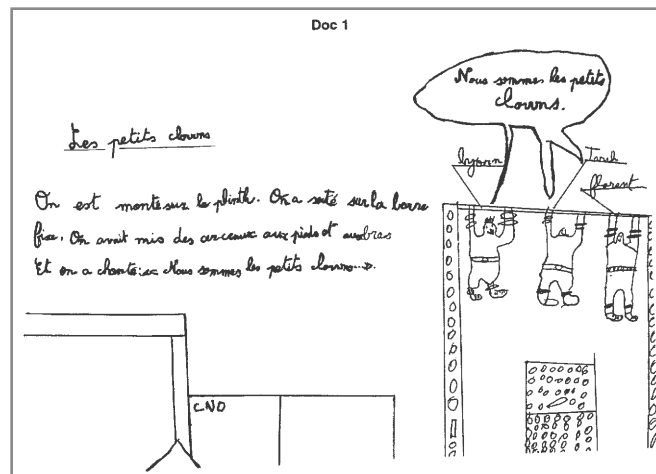 Doc 1
Nous sommes les petits
clowns.
Les petits clowns
Tarik
florent
On est monté sur le plinth. On a sauté sur la barre
fixe. On avait mis des arceaux aux pieds et aux bras
Et on a chanté : « Nous sommes les petits clowns... ».